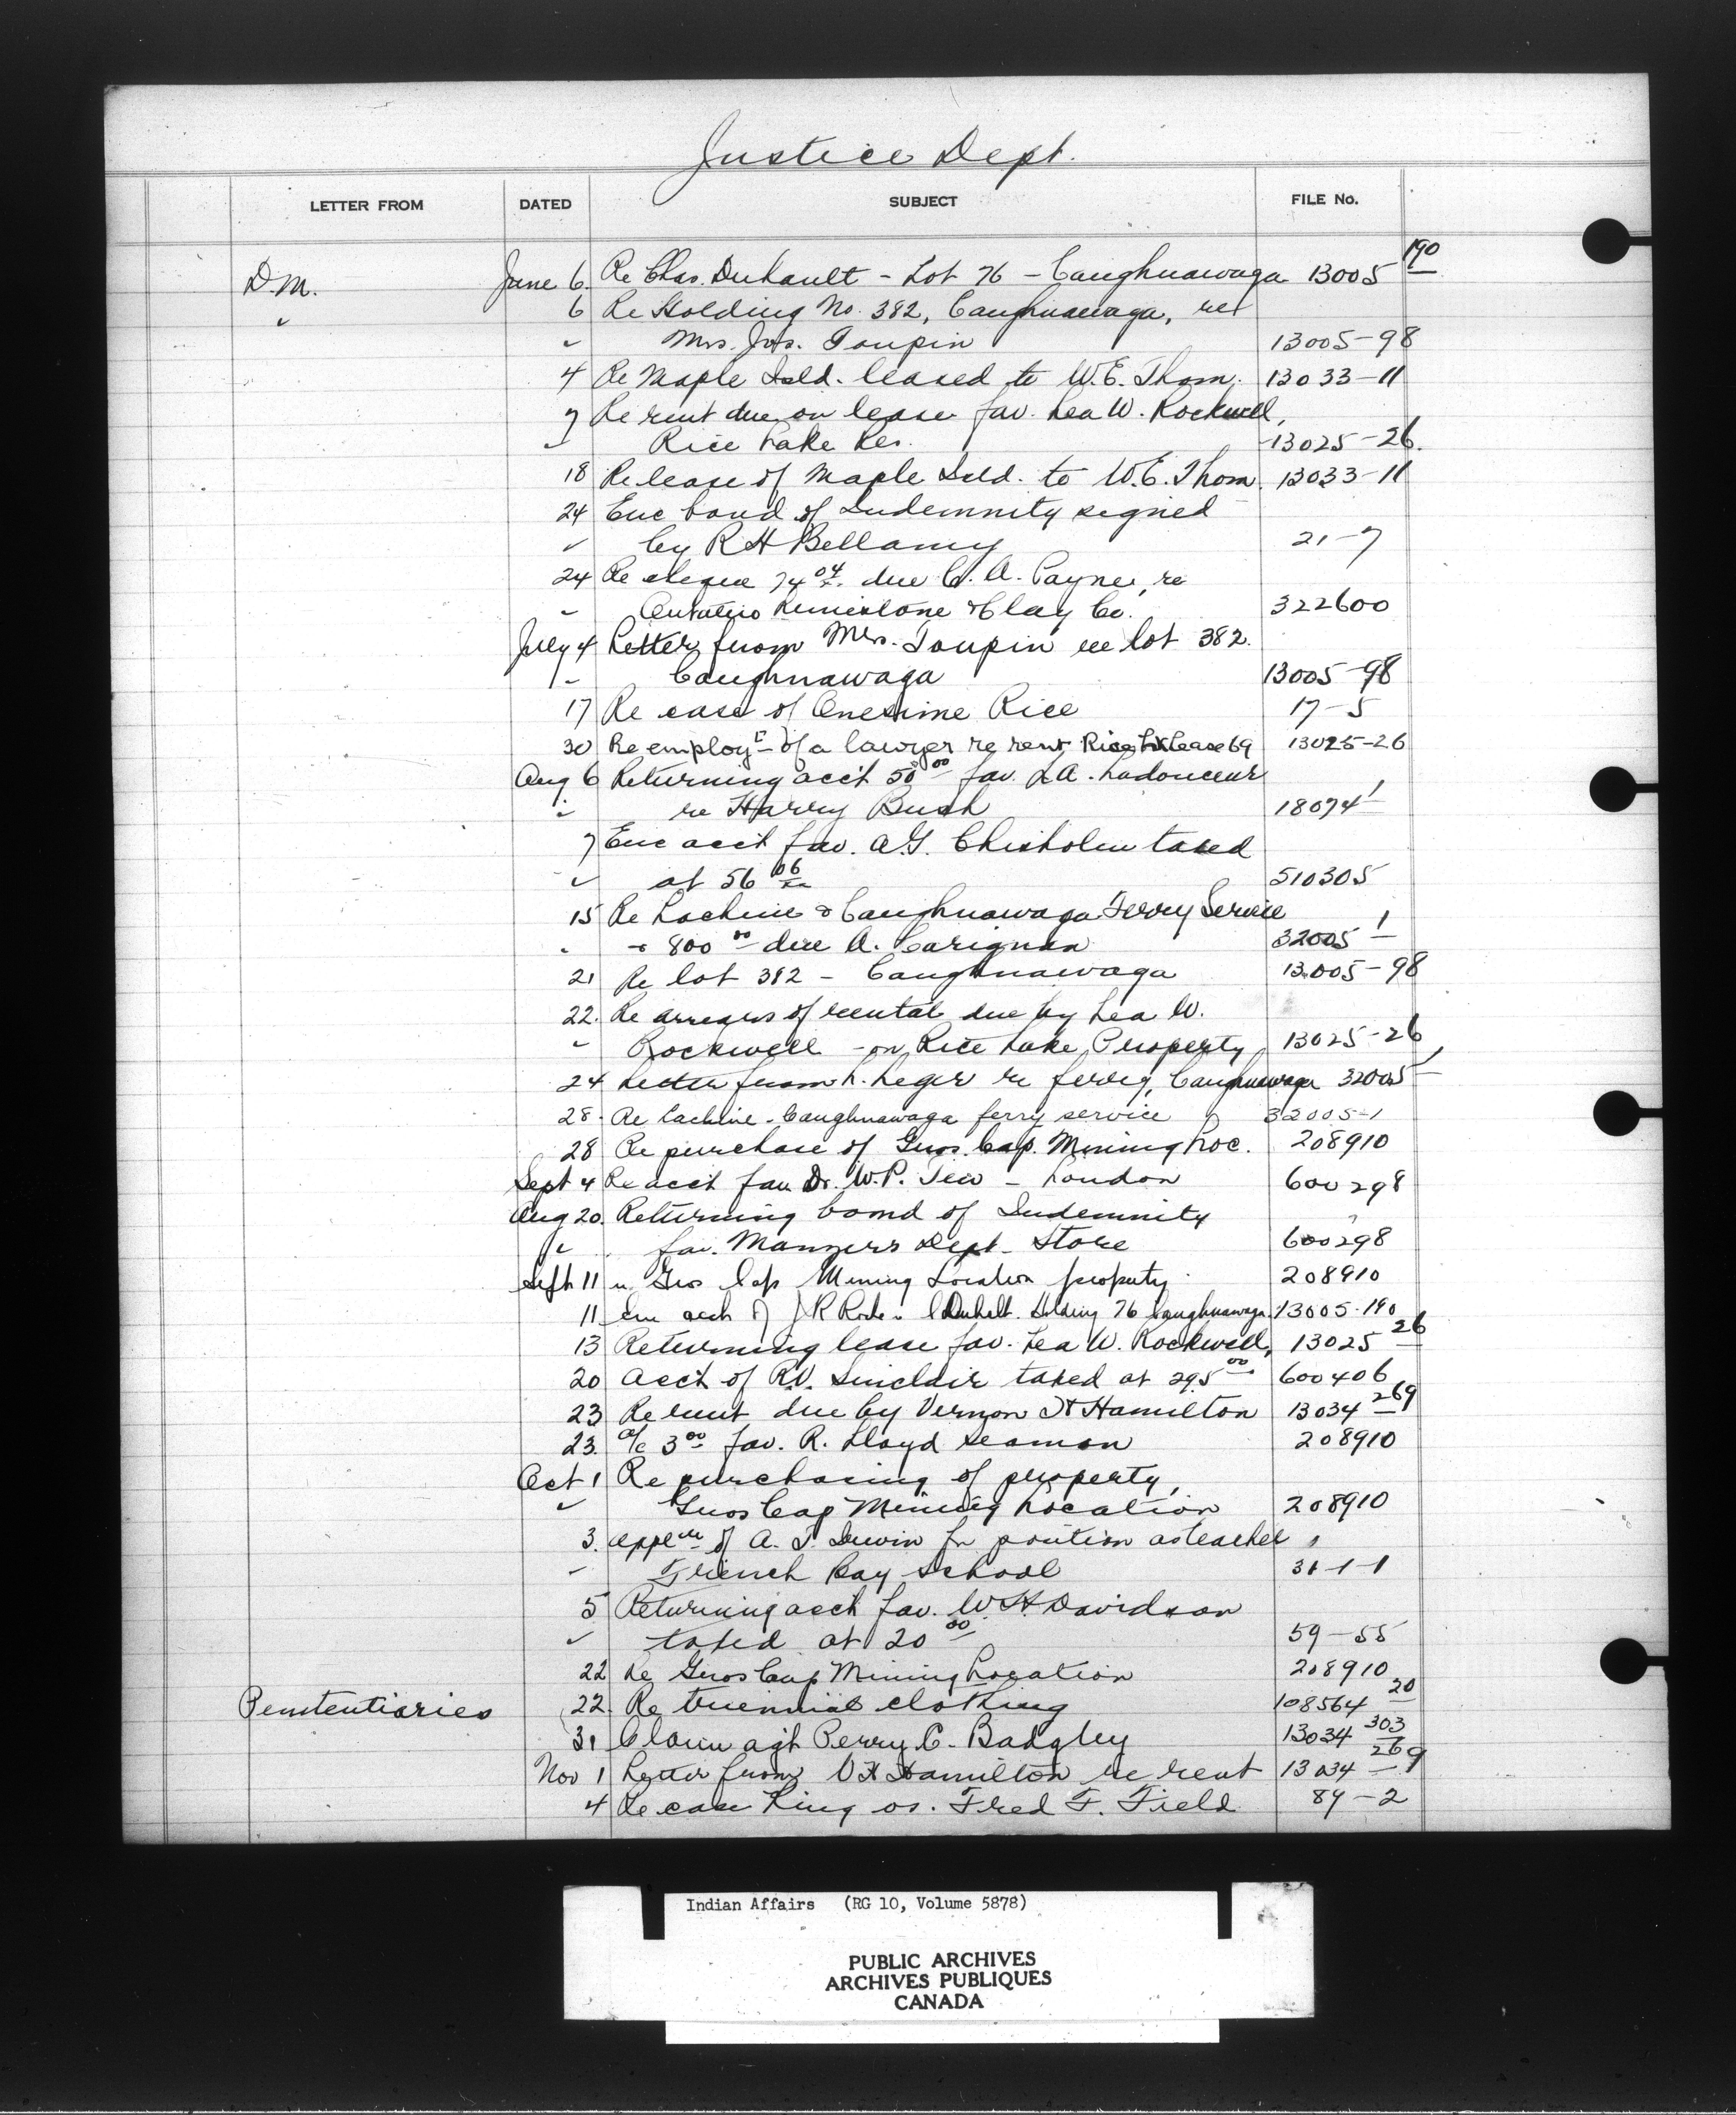 Justice Dept.
LETTER FROM DATED SUBJECT FILE No.
D.M. June 6. Re Chas. Duhault - Lot 76 - Caughnawaga 13005 190
" 6 Re Holding No. 382, Caughnawaga, re
" Mrs. Jos. Toupin 13005-98
4 Re Maple Isld. leased to W.E. Thom. 13033-11
7 Re rent due on lease fav. Lea W. Rockwell,
" Rice Lake Res. 13025-26.
18 Re lease of Maple Isld. to W.E. Thom. 13033-11
24 Enc bond of Indemnity signed
" by R H Bellamy 21-7
24 Re cheque 74 04 due C. A. Payne, re
" Ontario Limestone & Clay Co. 322600
July 4 Letter from Mrs. Toupin re lot 382.
" Caughnawaga 13005-98
17 Re case of Onesime Rice 17-5
30 Re employt of a lawyer re rent Rice Lk Lease 69 13025-26
Aug 6 Returning acct 50 00 fav. L A. Ladouceur
" re Harry Bush 18074 1
7 Enc acct fav. A.G. Chisholm taxed
" at 56 06 510305
15 Re Lachine & Caughnawaga Ferry Service
" & 800 00 due A. Carignan 32005 1
21 Re lot 382 - Caughnawaga 13005-98
22. Re arrears of rental due by Lea W.
" Rockwell - on Rice Lake Property 13025-26
24 Letter from L. Leger re ferry, Caughnawaga 32005 1
28. Re Lachine-Caughnawaga ferry service 32005-1
28 Re purchase of Gros Cap. Mining Loc. 208910
Sept 4 Re acct fav Dr. W.P. Tew - London 600298
Aug 20. Returning bond of Indemnity
" fav. Manzers Dept. Store 600298
Sept 11 re Gros Cap Mining Location property 208910
11 enc acct of J R Rode re C Duhalt. Holding 76 Caughnawaga. 13005-190
13 Returning lease fav. Lea W. Rockwell, 13025 26
20 Acct of R.V. Sinclair taxed at 295 00 600406
23 Re rent due by Vernon H Hamilton 13034 269
23. a/c 3 00 fav. R. Lloyd Seaman 208910
Oct 1 Re purchasing of property,
" Gros Cap Mining Location 208910
3. appln of A. J. Irwin for position as teacher
" French Bay School 31-1-1
5 Returning acct fav. W. H. Davidson
" taxed at 20 00 59-55
22 Re Gros Cap Mining Location 208910
Penitentiaries 22. Re triennial clothing 108564 20
31 Claim agst Perry C. Badgley 13034 303
Nov 1 Letter from V H Hamilton re rent 13034 269
4 Re case King vs. Fred F. Field 89-2
Indian Affairs (RG 10, Volume 5878)
PUBLIC ARCHIVES
ARCHIVES PUBLIQUES
CANADA